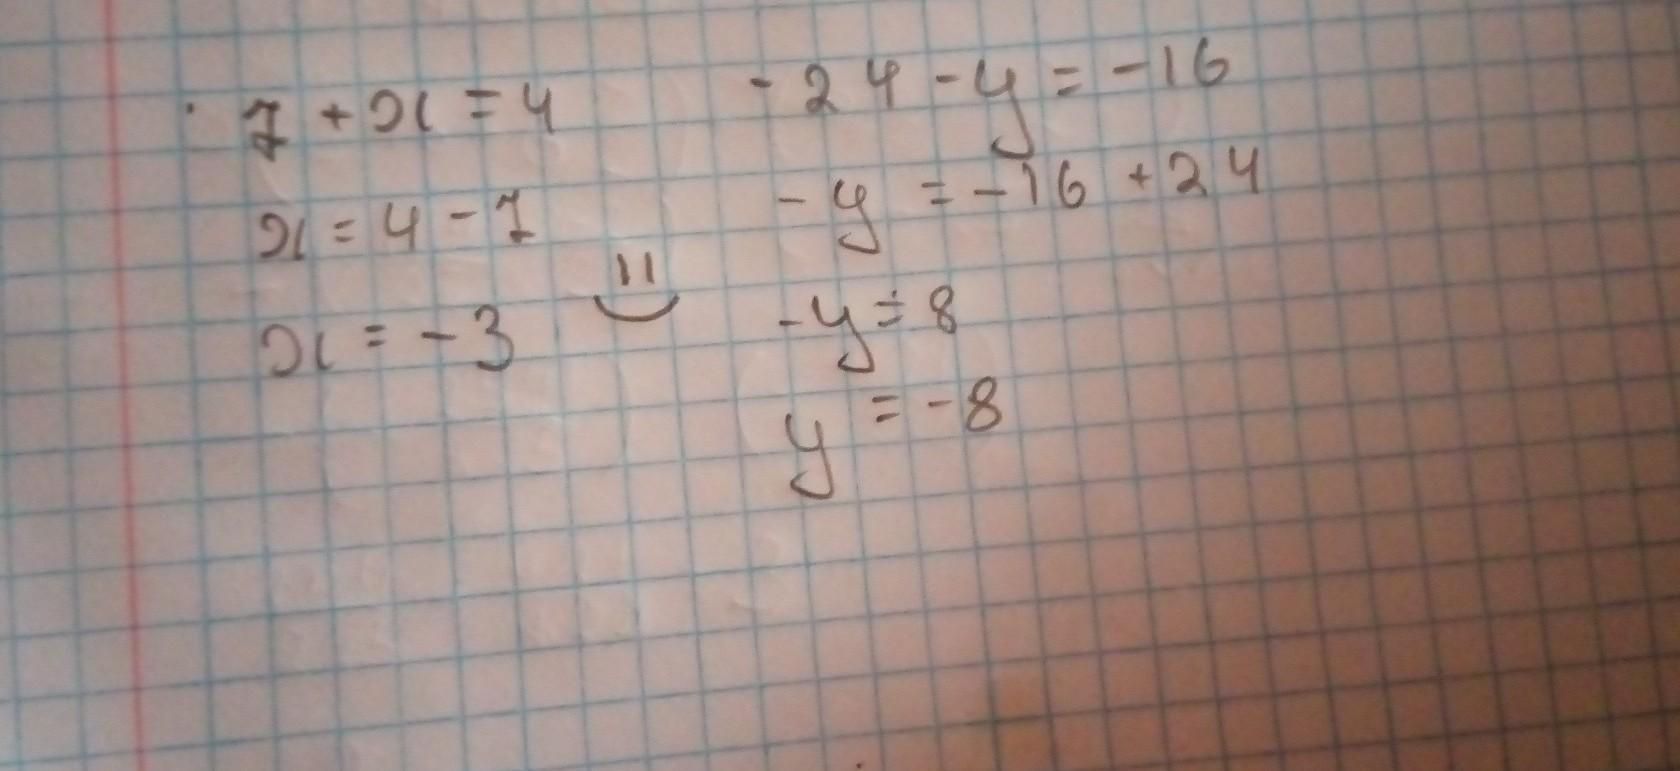 7 + x = 4
x = 4 - 7
x = -3
-24 - y = -16
-y = -16 + 24
-y = 8
y = -8